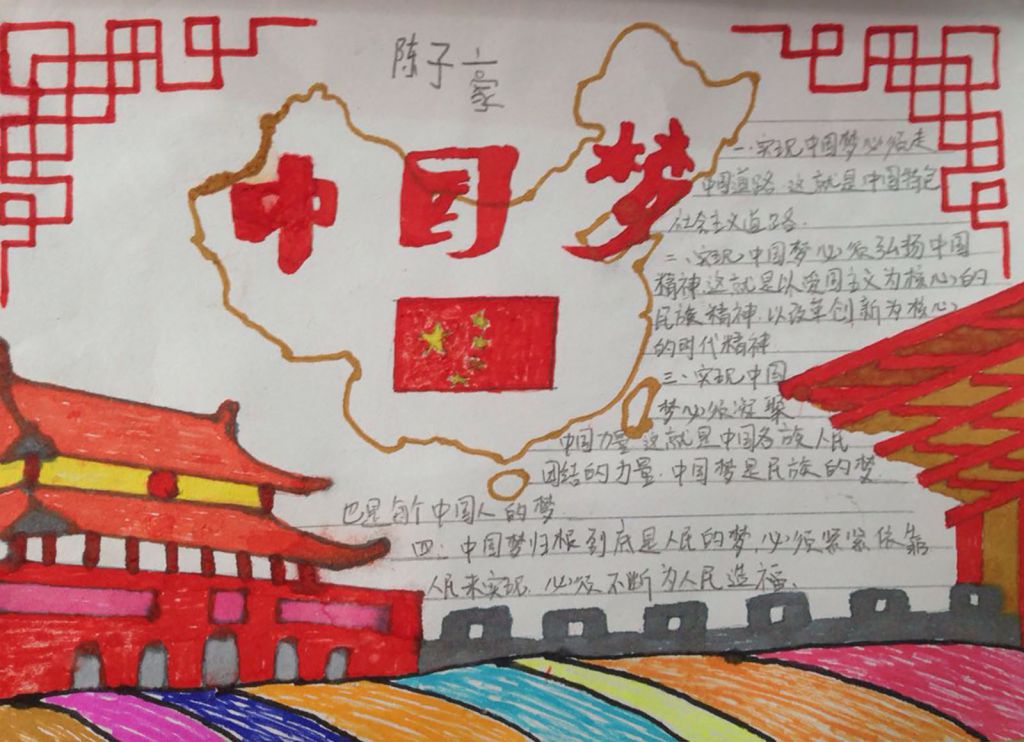 陈子豪
中国梦
一.实现中国梦必须走
中国道路.这就是中国特色
社会主义道路.
二、实现中国梦必须弘扬中国
精神.这就是以爱国主义为核心的
民族精神.以改革创新为核心
的时代精神
三、实现中国
梦必须凝聚
中国力量.这就是中国各族人民
团结的力量.中国梦是民族的梦
也是每个中国人的梦
四:中国梦归根到底是人民的梦,必须紧紧依靠
人民来实现.必须不断为人民造福.